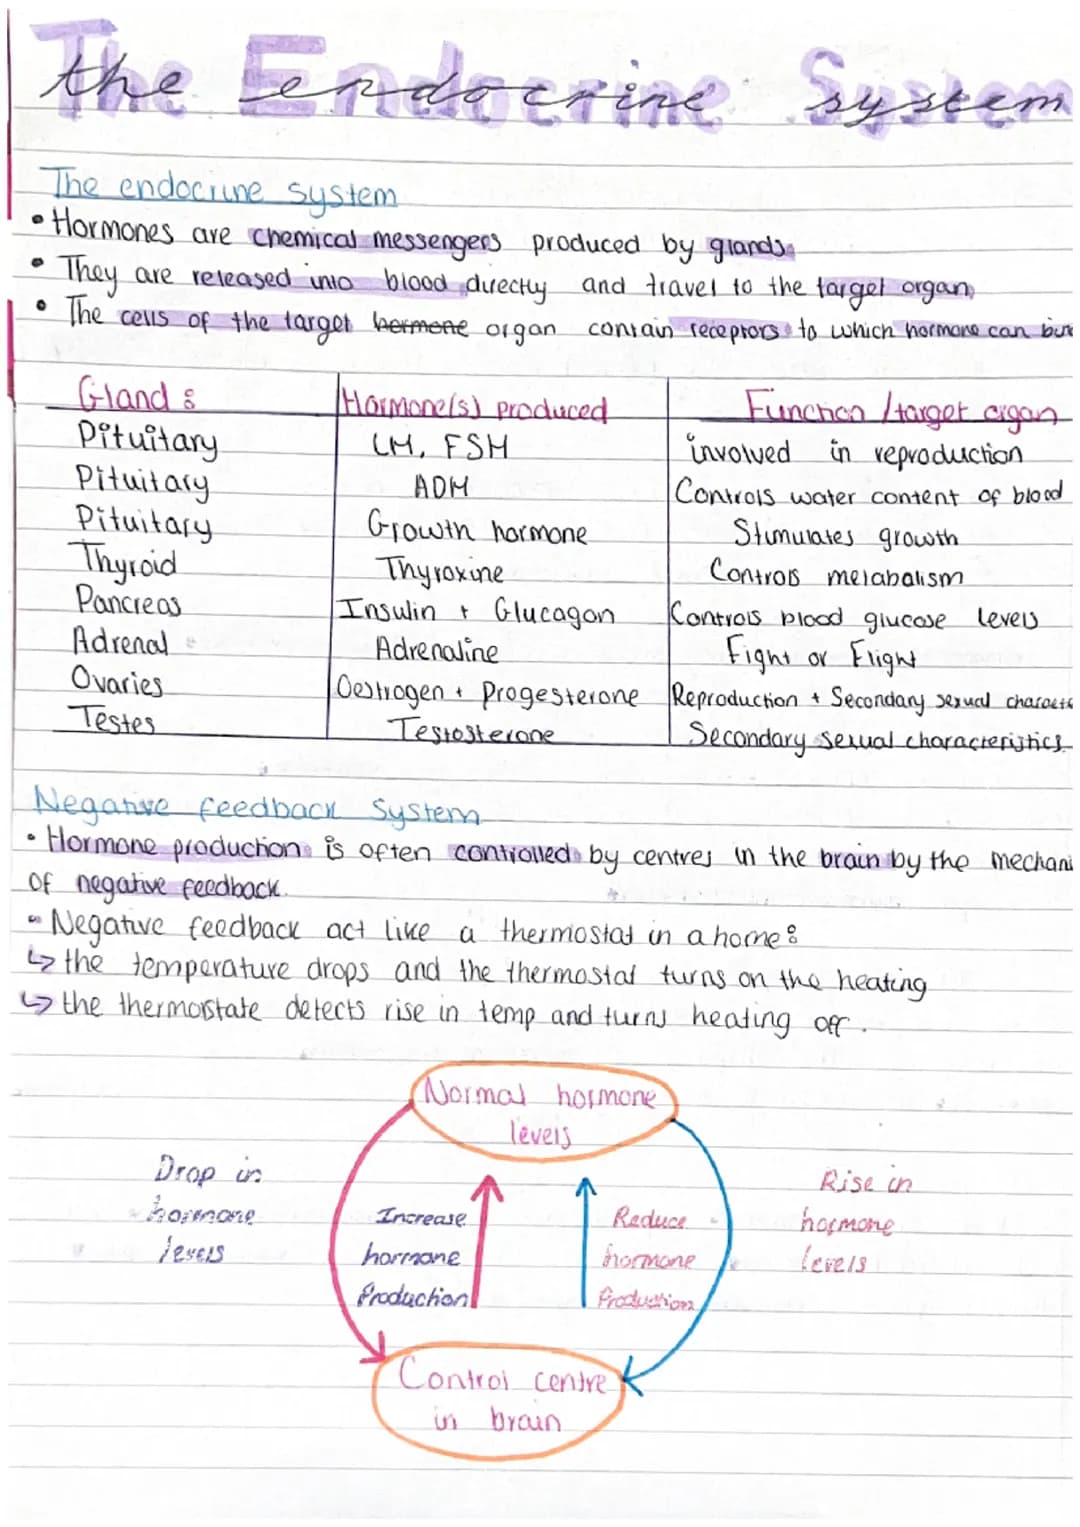 The Endocrine System
the endocrine system
The endocrine system
• Hormones are chemical messengers produced by glands.
• They are released into blood directly and travel to the target organ,
• The cells of the target hermene organ contain receptors to which hormone can bind
Gland: Hormone(s) produced Function / target organ
Pituitary LH, FSH involved in reproduction
Pituitary ADH Controls water content of blood
Pituitary Growth hormone Stimulates growth
Thyroid Thyroxine Controls metabolism
Pancreas Insulin + Glucagon Controls blood glucose levels
Adrenal Adrenaline Fight or Flight
Ovaries Oestrogen + Progesterone Reproduction + Secondary sexual characte
Testes Testosterone Secondary sexual characteristics
Negative feedback System
• Hormone production is often controlled by centres in the brain by the mechani
of negative feedback.
• Negative feedback act like a thermostat in a home:
↳ the temperature drops and the thermostat turns on the heating
↳ the thermorstate detects rise in temp and turns heating off.
Normal hormone
levels
Drop in
hormone
levels
Increase
hormone
Production
Reduce
hormone
Production
Rise in
hormone
levels
Control centre
in brain